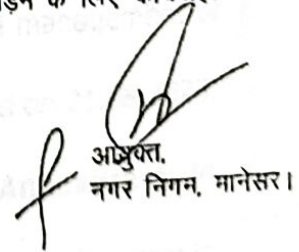 के लिए
आयुक्त,
नगर निगम, मानेसर।